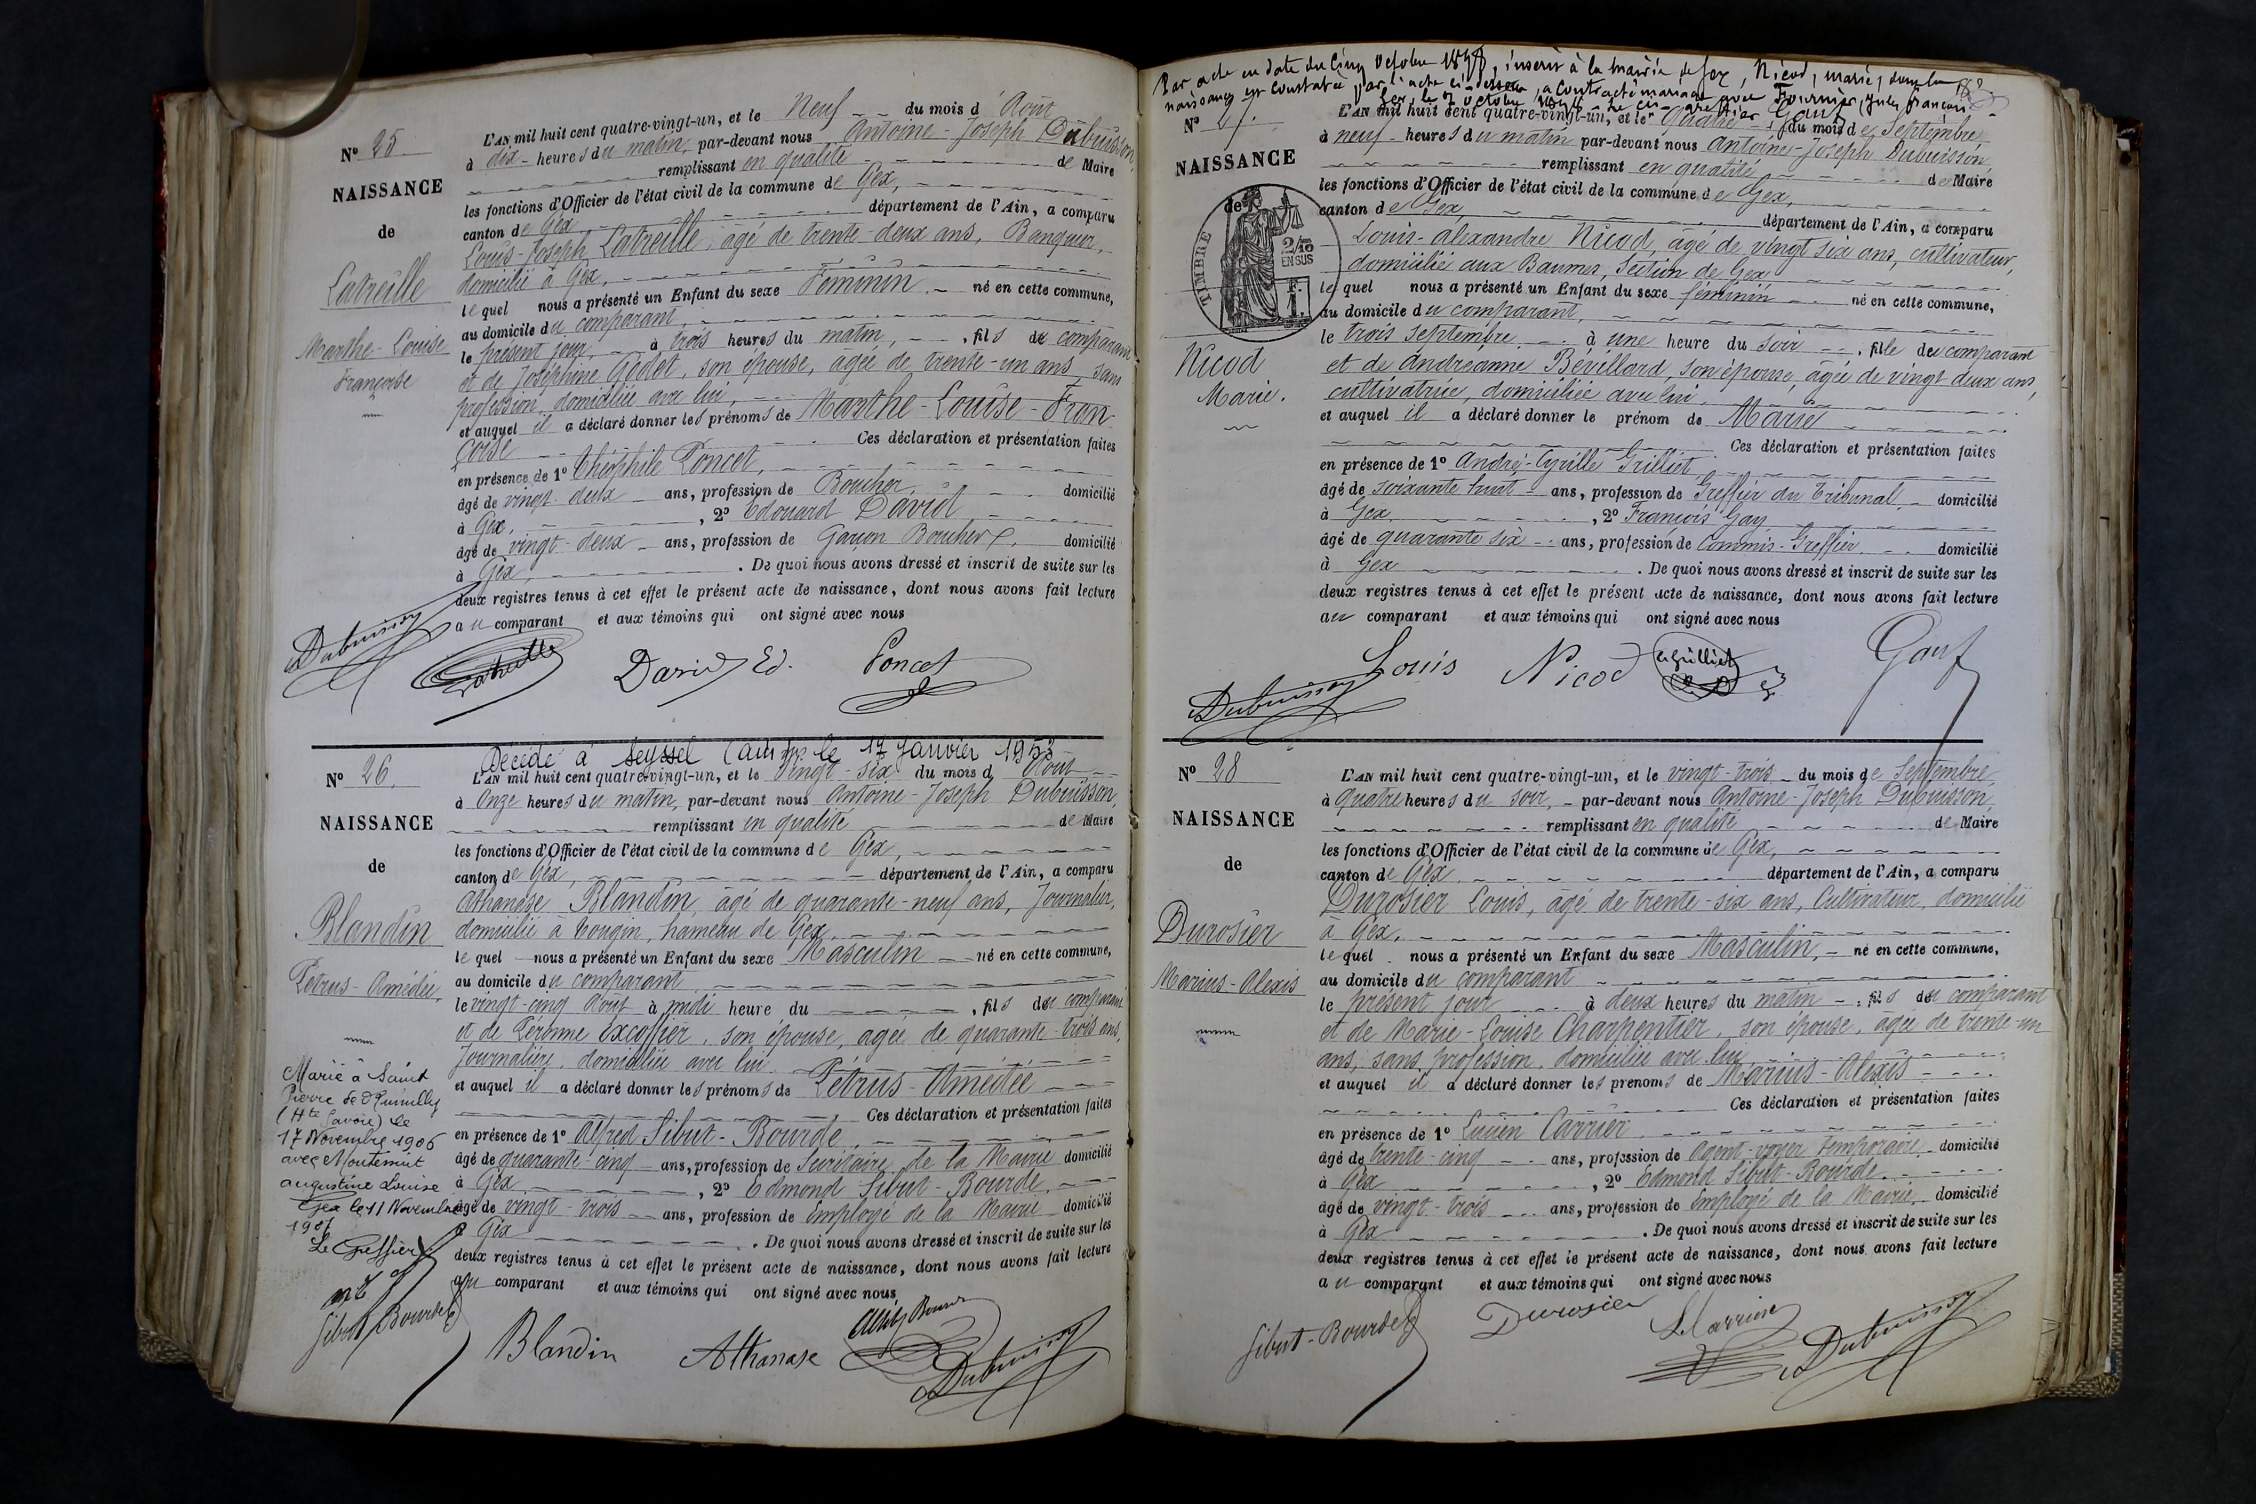 Nº 25
NAISSANCE
de
Latreille
Marthe-Louise
Françoise
L'AN mil huit cent quatre-vingt-un, et le Neuf du mois d'Août
à dix heures du matin, par-devant nous Antoine-Joseph Dubuisson,
remplissant en qualité de Maire
les fonctions d'Officier de l'état civil de la commune de Gex,
canton de Gex département de l'Ain, a comparu
Louis-Joseph Latreille, âgé de trente-deux ans, Banquier,
domicilié à Gex,
lequel nous a présenté un Enfant du sexe Féminin né en cette commune,
au domicile du comparant,
le présent jour, à trois heures du matin, , fils du comparant
et de Joséphine Gédet, son épouse, agée de trente-un ans, sans
profession, domiciliée avec lui,
et auquel il a déclaré donner les prénoms de Marthe-Louise-Fran-
çoise Ces déclaration et présentation faites
en présence de 1º Théophile Poncet,
âgé de vingt-deux ans, profession de Boucher, domicilié
à Gex, , 2º Edouard David
âgé de vingt-deux ans, profession de Garçon Boucher, domicilié
à Gex, . De quoi nous avons dressé et inscrit de suite sur les
deux registres tenus à cet effet le présent acte de naissance, dont nous avons fait lecture
au comparant et aux témoins qui ont signé avec nous
Dubuisson Latreille David Ed. Poncet
Décédé à Seyssel (Ain) le 17 Janvier 1953
Nº 26.
NAISSANCE
de
Blandin
Pétrus-Amédée,
Marié à Saint
Pierre de Rumilly
(Hte Savoie) le
17 Novembre 1906
avec
augustine Louise
Gex le 11 Novembre
Le Greffier
Sibut-Bourde
L'AN mil huit cent quatre-vingt-un, et le Vingt-six du mois d'Août
à Onze heures du matin, par-devant nous Antoine-Joseph Dubuisson,
remplissant en qualité de Maire
les fonctions d'Officier de l'état civil de la commune de Gex,
canton de Gex, département de l'Ain, a comparu
Athanase Blandin, âgé de quarante-neuf ans, Journalier,
domicilié à Tougin, hameau de Gex,
lequel nous a présenté un Enfant du sexe Masculin né en cette commune,
au domicile du comparant
le vingt-cinq Août à midi heure du , fils du comparant
et de Péronne Excoffier, son épouse, agée de quarante-trois ans,
Journalière, domiciliée avec lui.
et auquel il a déclaré donner les prénoms de Pétrus-Amédée
Ces déclaration et présentation faites
en présence de 1º Alfred Sibut-Bourde,
âgé de quarante-cinq ans, profession de Secrétaire de la Mairie domicilié
à Gex , 2º Edmond Sibut-Bourde,
âgé de vingt-trois ans, profession de Employé de la Mairie domicilié
à Gex . De quoi nous avons dressé et inscrit de suite sur les
deux registres tenus à cet effet le présent acte de naissance, dont nous avons fait lecture
au comparant et aux témoins qui ont signé avec nous
Blandin Athanase Dubuisson
Par acte en date du Cinq Octobre inscrit à la mairie de Gex, Nicod, Marie, dont la
naissance est constatée par l'acte ci-dessous, a contracté mariage avec Fournier, Jules François.
Gex, le octobre
Nº
NAISSANCE
de
TIMBRE
2/10 EN SUS
Nicod
Marie.
L'AN mil huit cent quatre-vingt-un, et le Quatre du mois de Septembre
à neuf heures du matin par-devant nous Antoine-Joseph Dubuisson,
remplissant en qualité de Maire
les fonctions d'Officier de l'état civil de la commune de Gex,
canton de Gex, département de l'Ain, a comparu
Louis-Alexandre Nicod, âgé de vingt six ans, cultivateur,
domicilié aux Baumes, Section de Gex
lequel nous a présenté un Enfant du sexe féminin né en cette commune,
au domicile du comparant,
le trois Septembre à une heure du soir , fille du comparant
et de Andréanne Bévillard, son épouse, âgée de vingt deux ans,
cultivatrice, domiciliée avec lui,
et auquel il a déclaré donner le prénom de Marie
Ces déclaration et présentation faites
en présence de 1º André-Cyrille Grilliet
âgé de soixante huit ans, profession de Greffier du Tribunal, domicilié
à Gex , 2º François Gay
âgé de quarante six ans, profession de Commis-Greffier domicilié
à Gex . De quoi nous avons dressé et inscrit de suite sur les
deux registres tenus à cet effet le présent acte de naissance, dont nous avons fait lecture
au comparant et aux témoins qui ont signé avec nous
Dubuisson Louis Nicod Grilliet Gay
Nº 28
NAISSANCE
de
Durosier
Marius-Alexis
L'AN mil huit cent quatre-vingt-un, et le vingt-trois du mois de Septembre
à quatre heures du soir, par-devant nous Antoine-Joseph Dubuisson,
remplissant en qualité de Maire
les fonctions d'Officier de l'état civil de la commune de Gex,
canton de Gex département de l'Ain, a comparu
Durosier Louis, âgé de trente-six ans, Cultivateur, domicilié
à Gex,
lequel nous a présenté un Enfant du sexe Masculin, né en cette commune,
au domicile du comparant
le présent jour à deux heures du matin , fils du comparant
et de Marie-Louise Charpentier, son épouse, âgée de trente-un
ans, sans profession, domiciliée avec lui,
et auquel il a déclaré donner les prénoms de Marius-Alexis
Ces déclaration et présentation faites
en présence de 1º Lucien Carrier
âgé de trente-cinq ans, profession de Agent-voyer temporaire domicilié
à Gex , 2º Edmond Sibut-Bourde,
âgé de vingt-trois ans, profession de Employé de la Mairie domicilié
à Gex . De quoi nous avons dressé et inscrit de suite sur les
deux registres tenus à cet effet le présent acte de naissance, dont nous avons fait lecture
au comparant et aux témoins qui ont signé avec nous
Sibut-Bourde Durosier L Carrier Dubuisson